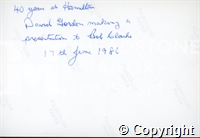 40 years at Hamilton
David Gordon making a
presentation to Bob Clarke
17th June 1986
© Copyright